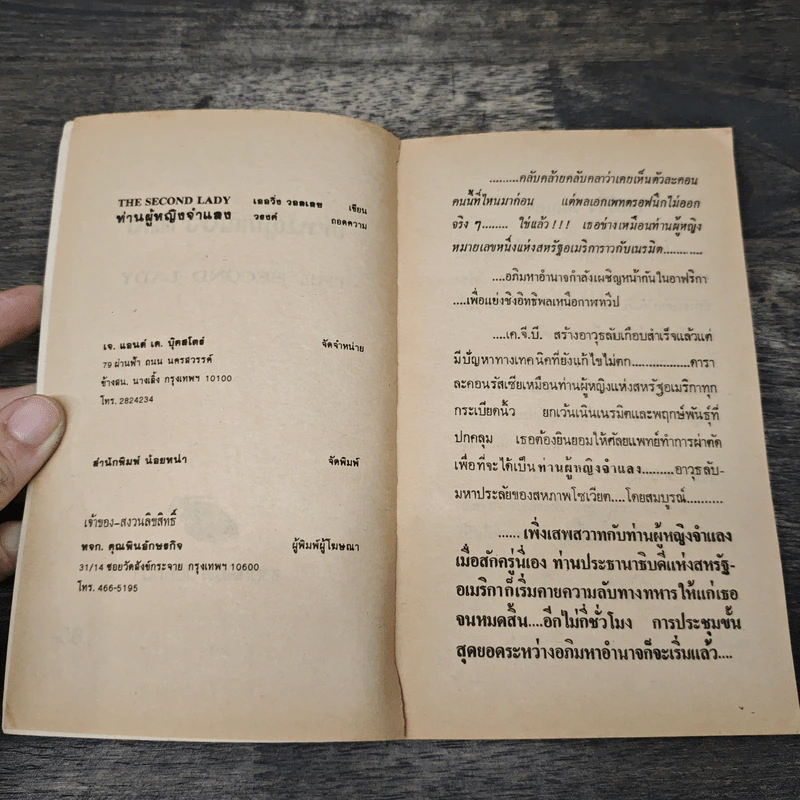 THE SECOND LADY เออวิ่ง วอลเลซ เขียน
ท่านผู้หญิงจำแลง วรงค์ ถอดความ
เจ. แอนด์ เค. บุ๊คสโตร์ จัดจำหน่าย
79 ผ่านฟ้า ถนน นครสวรรค์
ข้างสน. นางเลิ้ง กรุงเทพฯ 10100
โทร. 2824234
สำนักพิมพ์ น้อยหน่า จัดพิมพ์
เจ้าของ-สงวนลิขสิทธิ์
หจก. คุณพินอักษรกิจ ผู้พิมพ์ผู้โฆษณา
31/14 ซอยวัดสังข์กระจาย กรุงเทพฯ 10600
โทร. 466-5195
.........คลับคล้ายคลับคลาว่าเคยเห็นตัวละคอน
คนนี้ที่ไหนมาก่อน แต่พลเอกเพทตรอฟนึกไม่ออก
จริง ๆ....... ใช่แล้ว!!! เธอช่างเหมือนท่านผู้หญิง
หมายเลขหนึ่งแห่งสหรัฐอเมริการาวกับเนรมิต...........
....อภิมหาอำนาจกำลังเผชิญหน้ากันในอาฟริกา
....เพื่อแย่งชิงอิทธิพลเหนือกาฬทวีป
....เค.จี.บี. สร้างอาวุธลับเกือบสำเร็จแล้วแต่
มีปัญหาทางเทคนิคที่ยังแก้ไขไม่ตก................ดารา
ละคอนรัสเซียเหมือนท่านผู้หญิงแห่งสหรัฐอเมริกาทุก
กระเบียดนิ้ว ยกเว้นเนินเนรมิตและพฤกษ์พันธุ์ที่
ปกคลุม เธอต้องยินยอมให้ศัลยแพทย์ทำการผ่าตัด
เพื่อที่จะได้เป็นท่านผู้หญิงจำแลง.........อาวุธลับ-
มหาประลัยของสหภาพโซเวียต....โดยสมบูรณ์..........
...... เพิ่งเสพสวาทกับท่านผู้หญิงจำแลง
เมื่อสักครู่นี้เอง ท่านประธานาธิบดีแห่งสหรัฐ-
อเมริกาก็เริ่มคายความลับทางทหารให้แก่เธอ
จนหมดสิ้น....อีกไม่กี่ชั่วโมง การประชุมขั้น
สุดยอดระหว่างอภิมหาอำนาจก็จะเริ่มแล้ว....